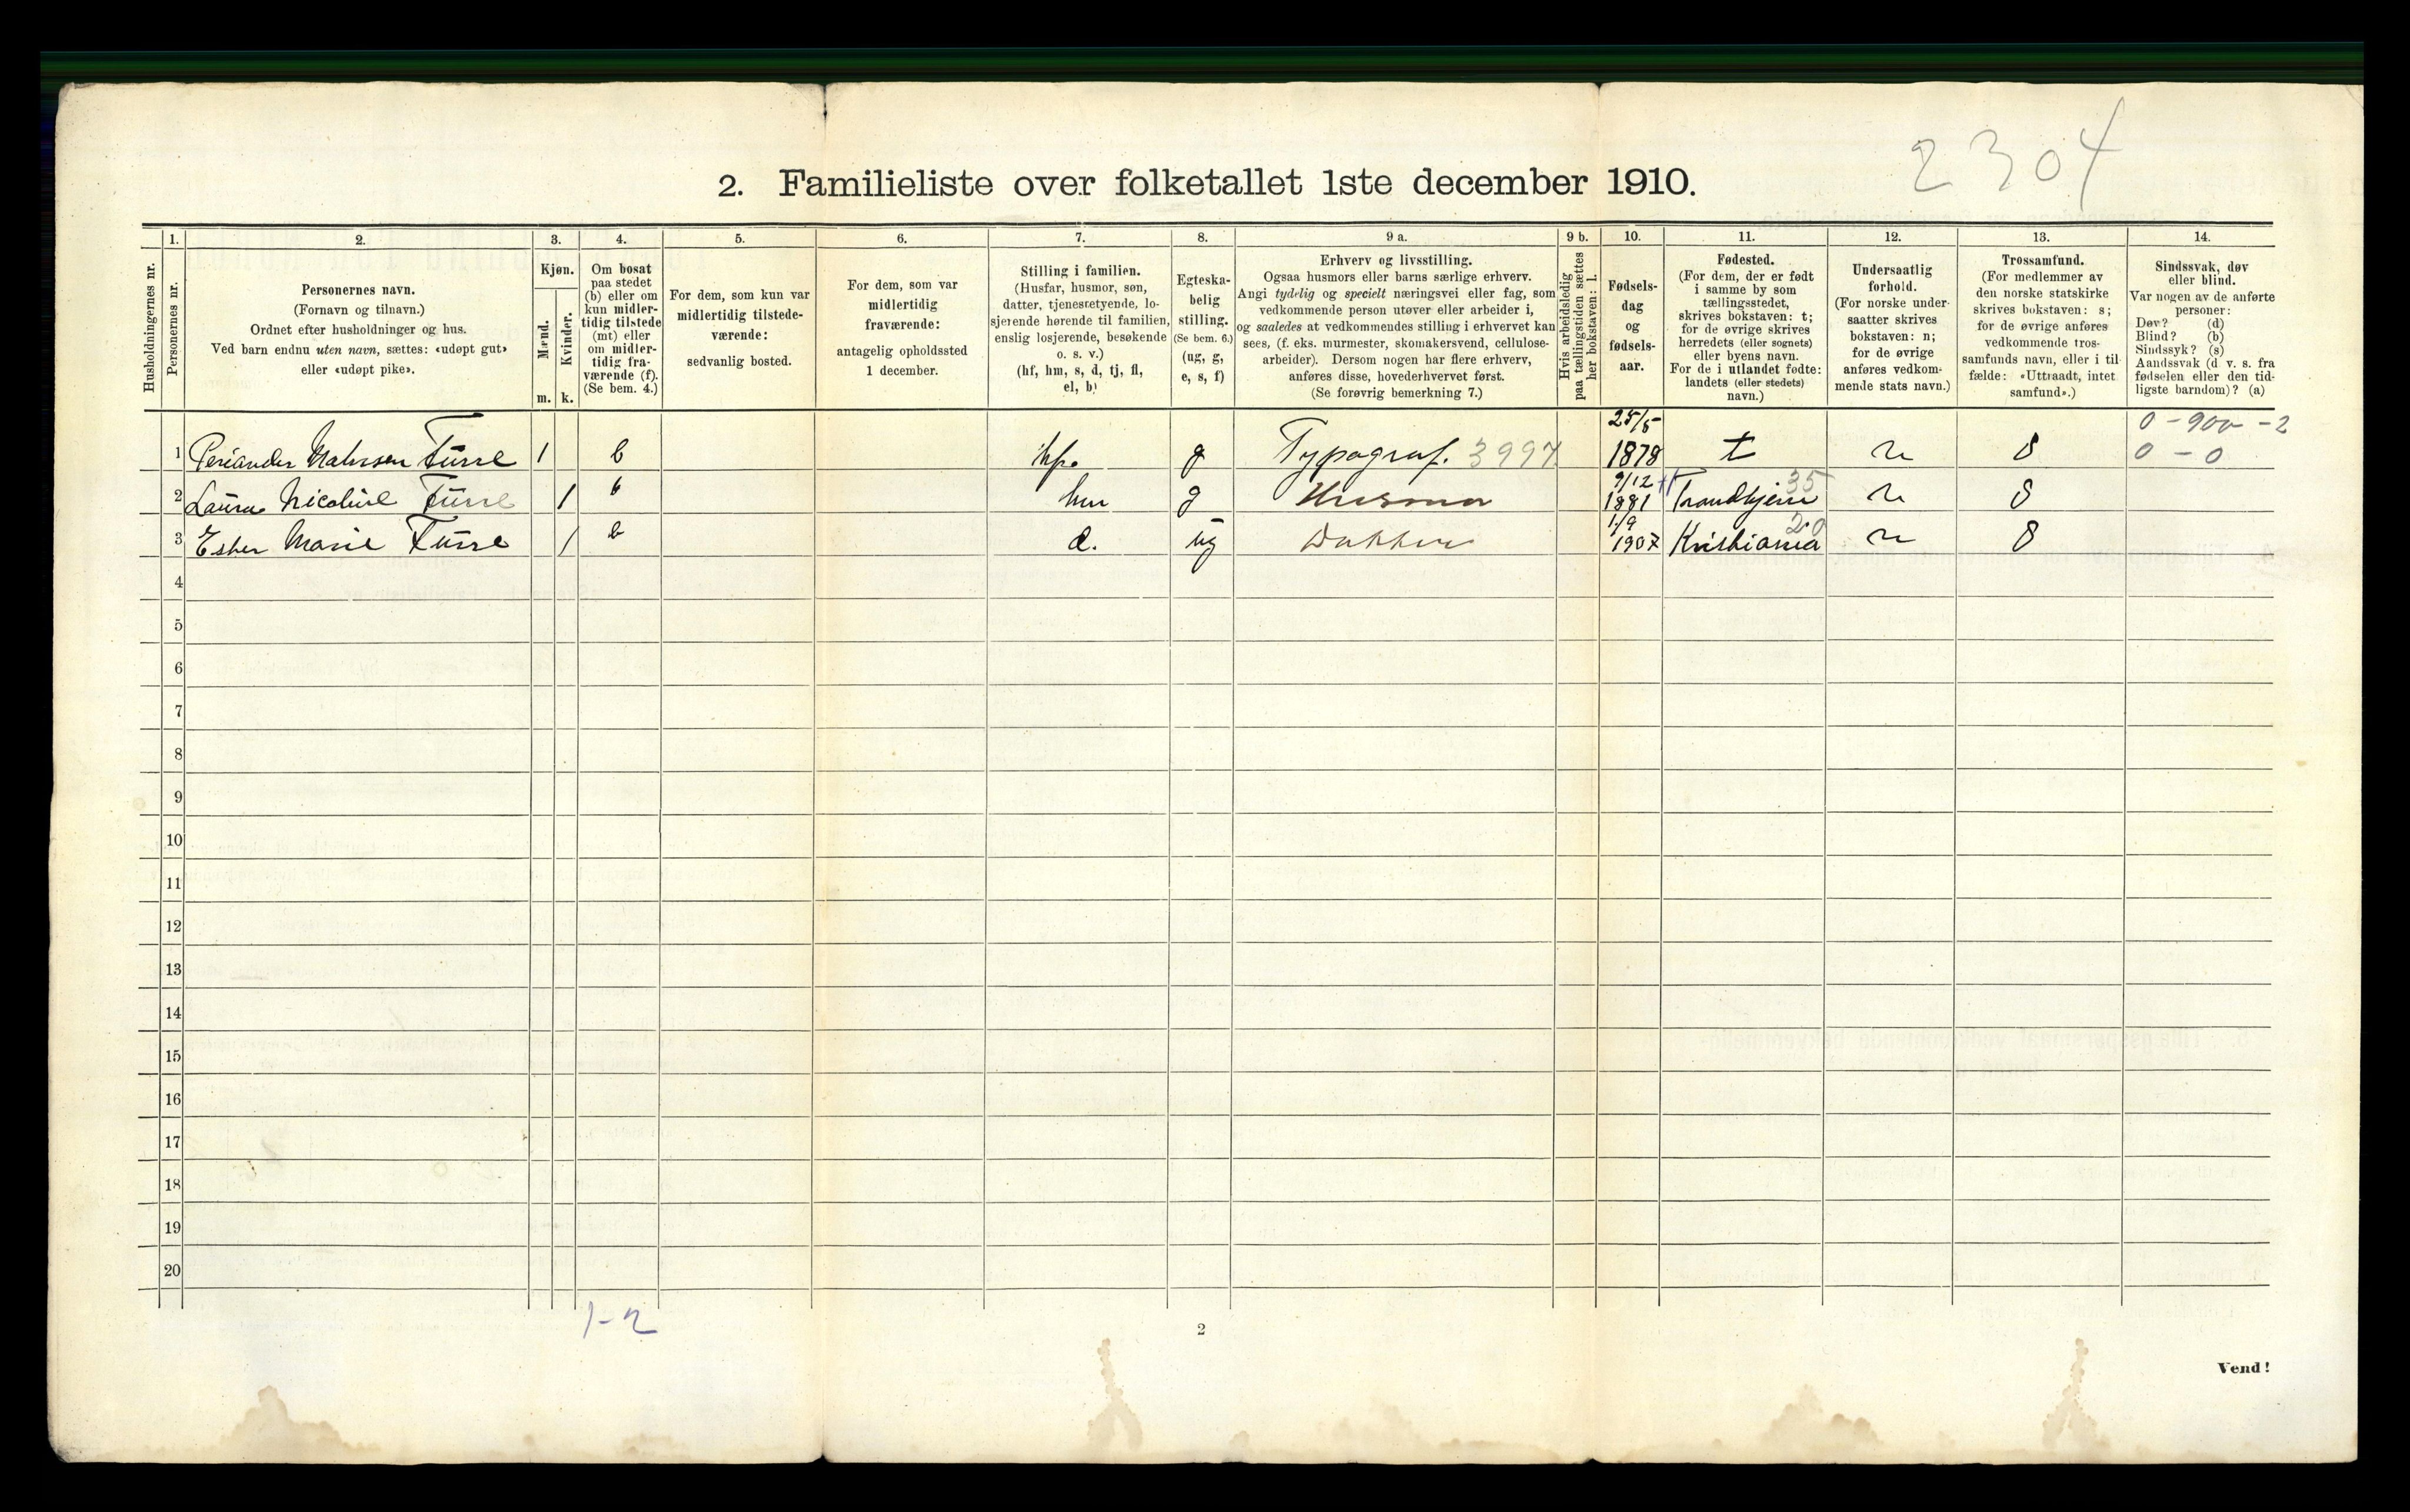 2304
2. Familieliste over folketallet 1ste december 1910.
Husholdningernes nr.
1.
Personernes nr.
2.
Personernes navn.
(Fornavn og tilnavn.)
Ordnet efter husholdninger og hus.
Ved barn endnu uten navn, sættes: «udøpt gut»
eller «udøpt pike».
3.
Kjøn.
Mænd.
Kvinder.
m. k.
4.
Om bosat
paa stedet
(b) eller om
kun midler-
tidig tilstede
(mt) eller
om midler-
tidig fra-
værende (f).
(Se bem. 4.)
5.
For dem, som kun var
midlertidig tilstede-
værende:
sedvanlig bosted.
6.
For dem, som var
midlertidig
fraværende:
antagelig opholdssted
1 december.
7.
Stilling i familien.
(Husfar, husmor, søn,
datter, tjenestetyende, lo-
sjerende hørende til familien,
enslig losjerende, besøkende
o. s. v.)
(hf, hm, s, d, tj, fl,
el, b)
8.
Egteska-
belig
stilling.
(Se bem. 6.)
(ug, g,
e, s, f)
9 a.
Erhverv og livsstilling.
Ogsaa husmors eller barns særlige erhverv.
Angi tydelig og specielt næringsvei eller fag, som
vedkommende person utøver eller arbeider i,
og saaledes at vedkommendes stilling i erhvervet kan
sees, (f. eks. murmester, skomakersvend, cellulose-
arbeider). Dersom nogen har flere erhverv,
anføres disse, hovederhvervet først.
(Se forøvrig bemerkning 7.)
9 b.
Hvis arbeidsledig
paa tællingstiden sættes
her bokstaven: l.
10.
Fødsels-
dag
og
fødsels-
aar.
11.
Fødested.
(For dem, der er født
i samme by som
tællingsstedet,
skrives bokstaven: t;
for de øvrige skrives
herredets (eller sognets)
eller byens navn.
For de i utlandet fødte:
landets (eller stedets)
navn.)
12.
Undersaatlig
forhold.
(For norske under-
saatter skrives
bokstaven: n;
for de øvrige
anføres vedkom-
mende stats navn.)
13.
Trossamfund.
(For medlemmer av
den norske statskirke
skrives bokstaven: s;
for de øvrige anføres
vedkommende tros-
samfunds navn, eller i til-
fælde: «Uttraadt, intet
samfund».)
14.
Sindssvak, døv
eller blind.
Var nogen av de anførte
personer:
Døv? (d)
Blind? (b)
Sindssyk? (s)
Aandssvak (d. v. s. fra
fødselen eller den tid-
ligste barndom)? (a)
25/5 0 - 900 - 2
1 Periander Furre 1 b g Typograf. 3997 1878 t n s 0 - 0
9/12 35
2 Laura Nicoline Furre 1 b hm g Husmor 1881 Trondhjem n s
1/9 20
3 Ester Marie Furre 1 b d. ug Datter 1907 Kristiania n s
4
5
6
7
8
9
10
11
12
13
14
15
16
17
18
19
20
1-2
2
Vend!